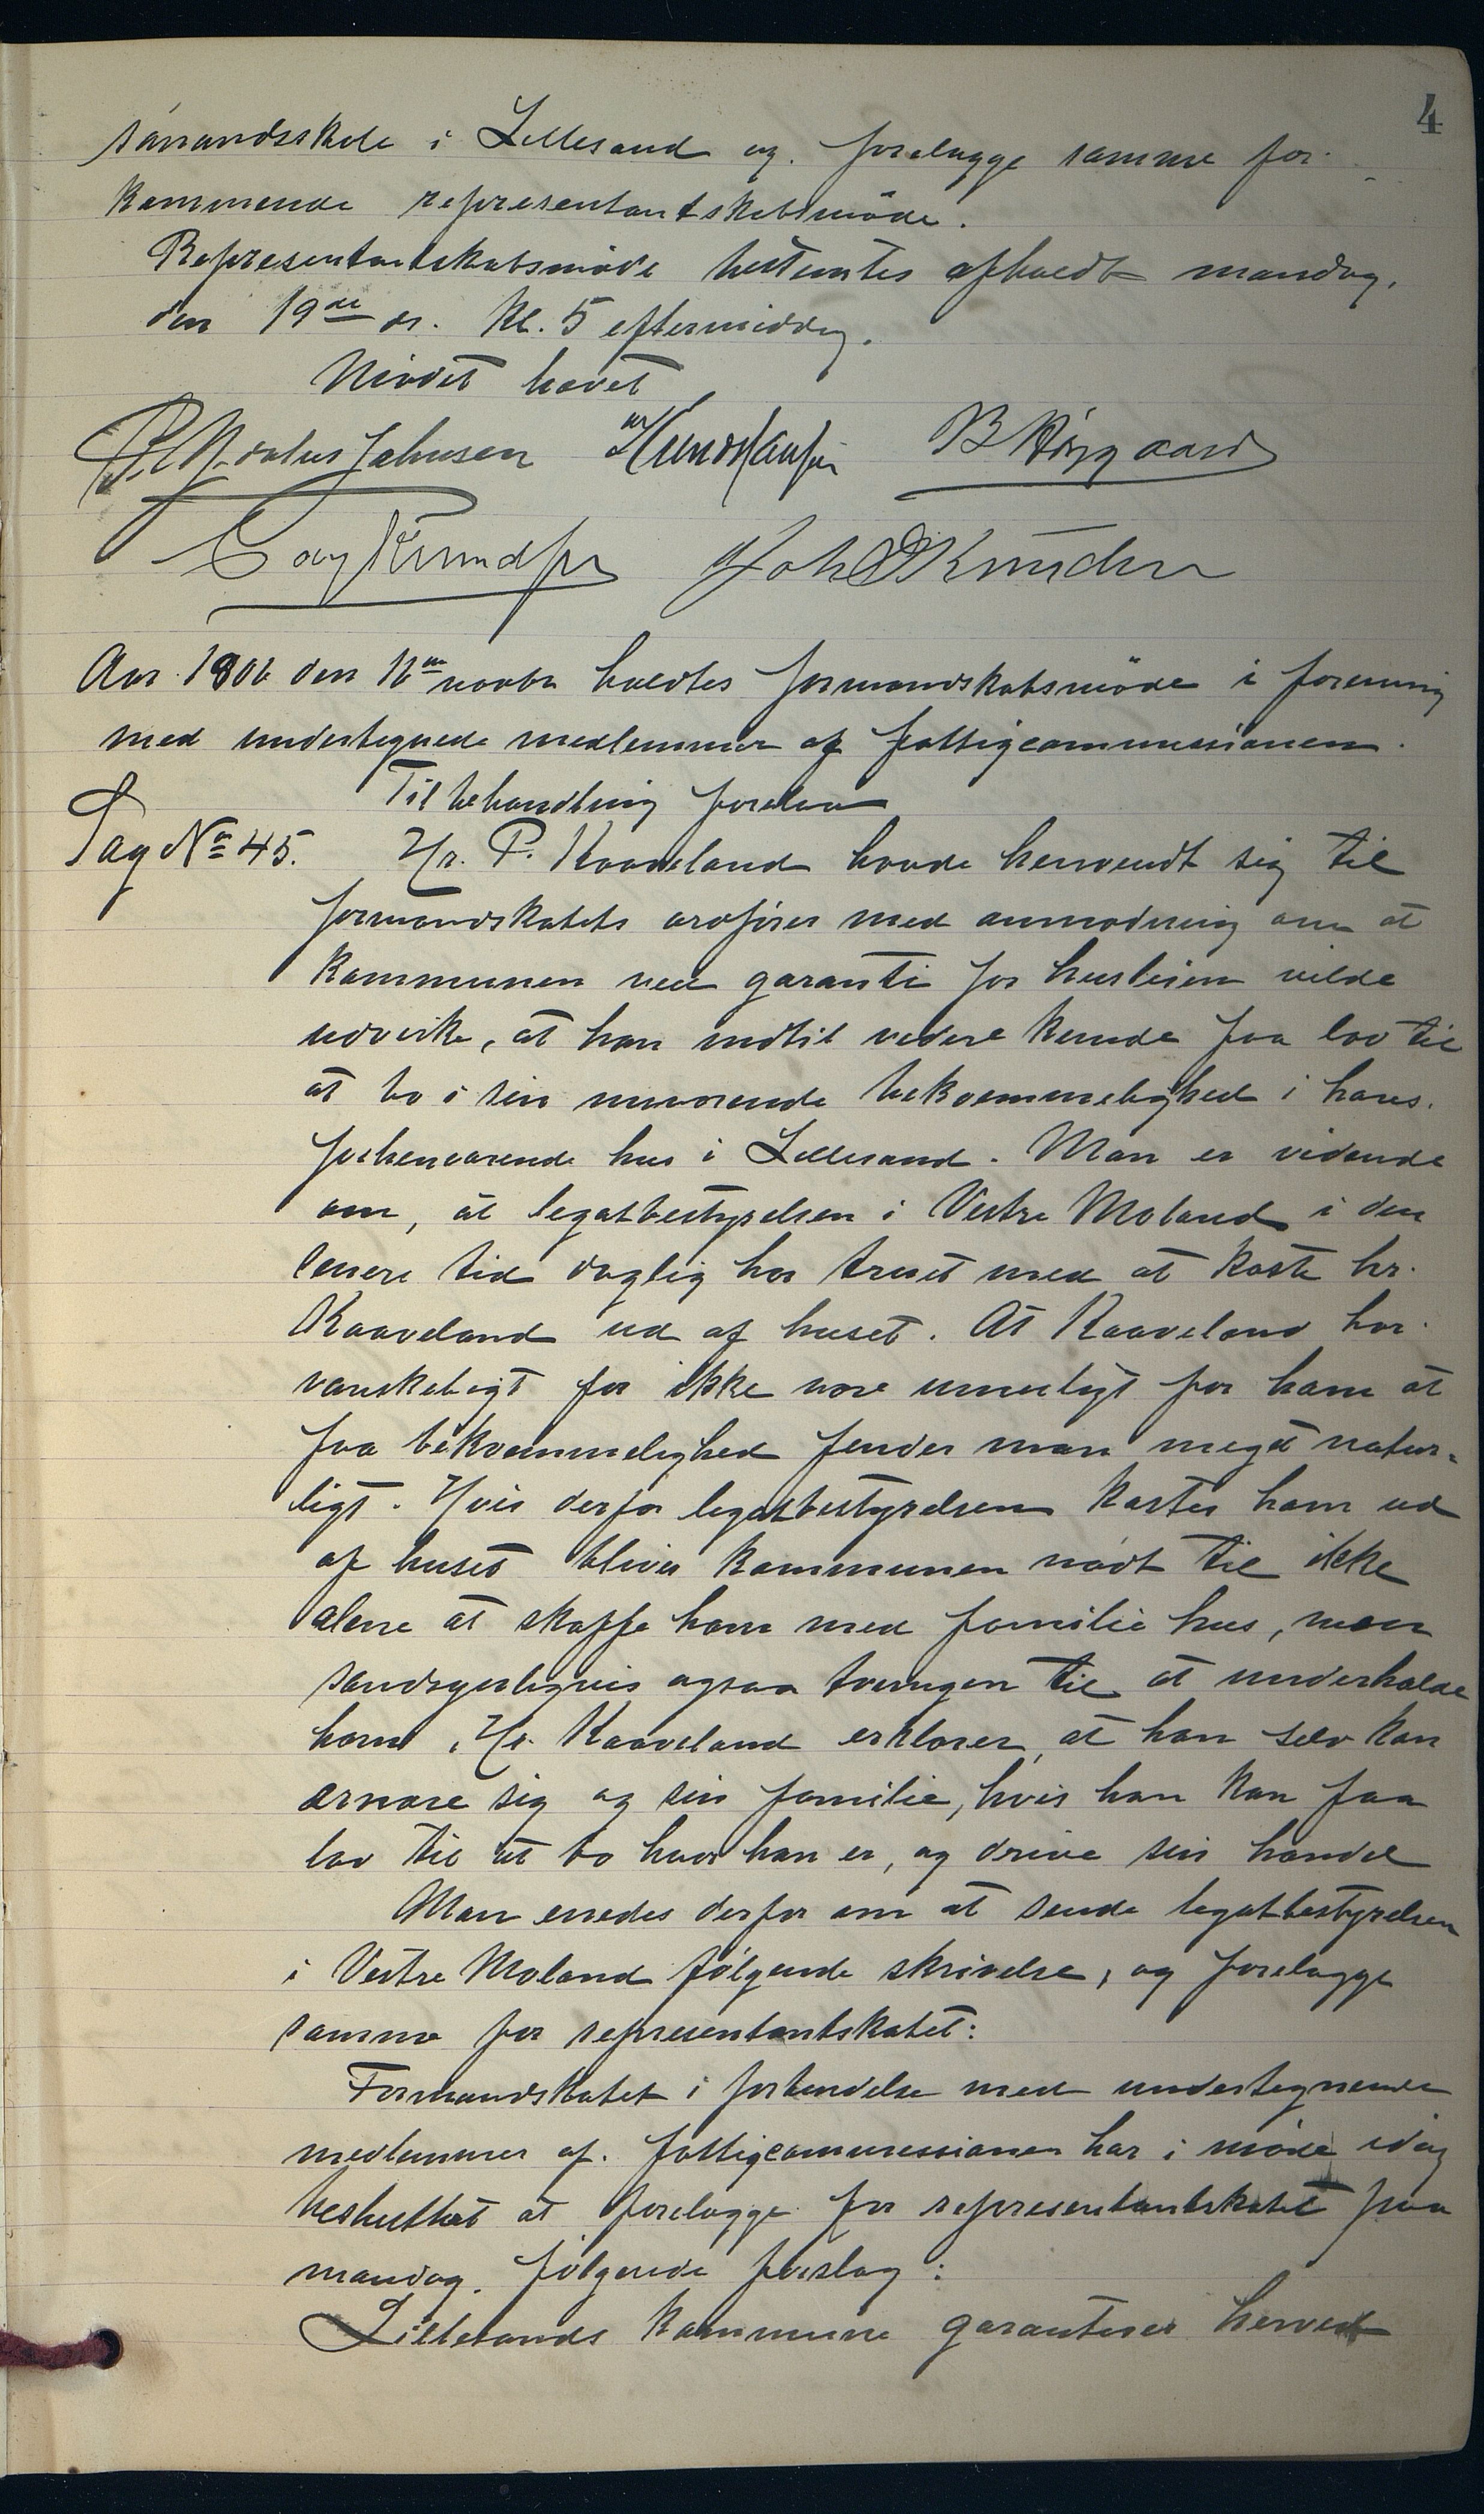 4
sömandsskole i Lillesand og forelægge samme for
kommende representantskabsmöde.
Representantskabsmöde bestemtes afholdt mandag,
den 19de ds. kl. 5 eftermiddag.
Mödet hævet
Johnsen B Hörgaard
Joh Knudsen
Aar 1906 den 16de novbr holdtes formandskabsmöde i forening
med undertegnede medlemmer af fattigcommissionen.
Til behandling forelaa
Sag No 45. Hr. P. Kaaveland havde henvendt sig til
formandskabets ordförer med anmodning om at
kommunen ved garanti for husleien vilde
udvirke, at han indtil videre kunde faa lov til
at bo i sin nuværende bekvemmelighed i hans
forhenværende hus i Lillesand. Man er vidende
om, at legatbestyrelsen i Vestre Moland i den
senere tid daglig har truet med at kaste hr.
Kaaveland ud af huset. At Kaaveland har
vanskeligt for ikke være umuligt for ham at
faa bekvemmelighed finder man meget natur-
ligt. Hvis derfor legatbestyrelsen kaster ham ud
af huset bliver kommunen nödt til ikke
alene at skaffe ham med familie hus, men
sandsynligvis ogsaa tvungen til at underholde
ham. Hr. Kaaveland erklærer, at han selv kan
ernære sig og sin familie, hvis han kan faa
lov til at bo hvor han er, og drive sin handel
Man enedes derfor om at sende legatbestyrelsen
i Vestre Moland fölgende skrivelse, og forelægge
samme for representantskabet:
Formandskabet i forbindelse med undertegnende
medlemmer af fattigcommissionen har i möde idag
besluttet at forelægge for representantskabet paa
mandag fölgende forslag:
Lillesands kommune garanterer herved